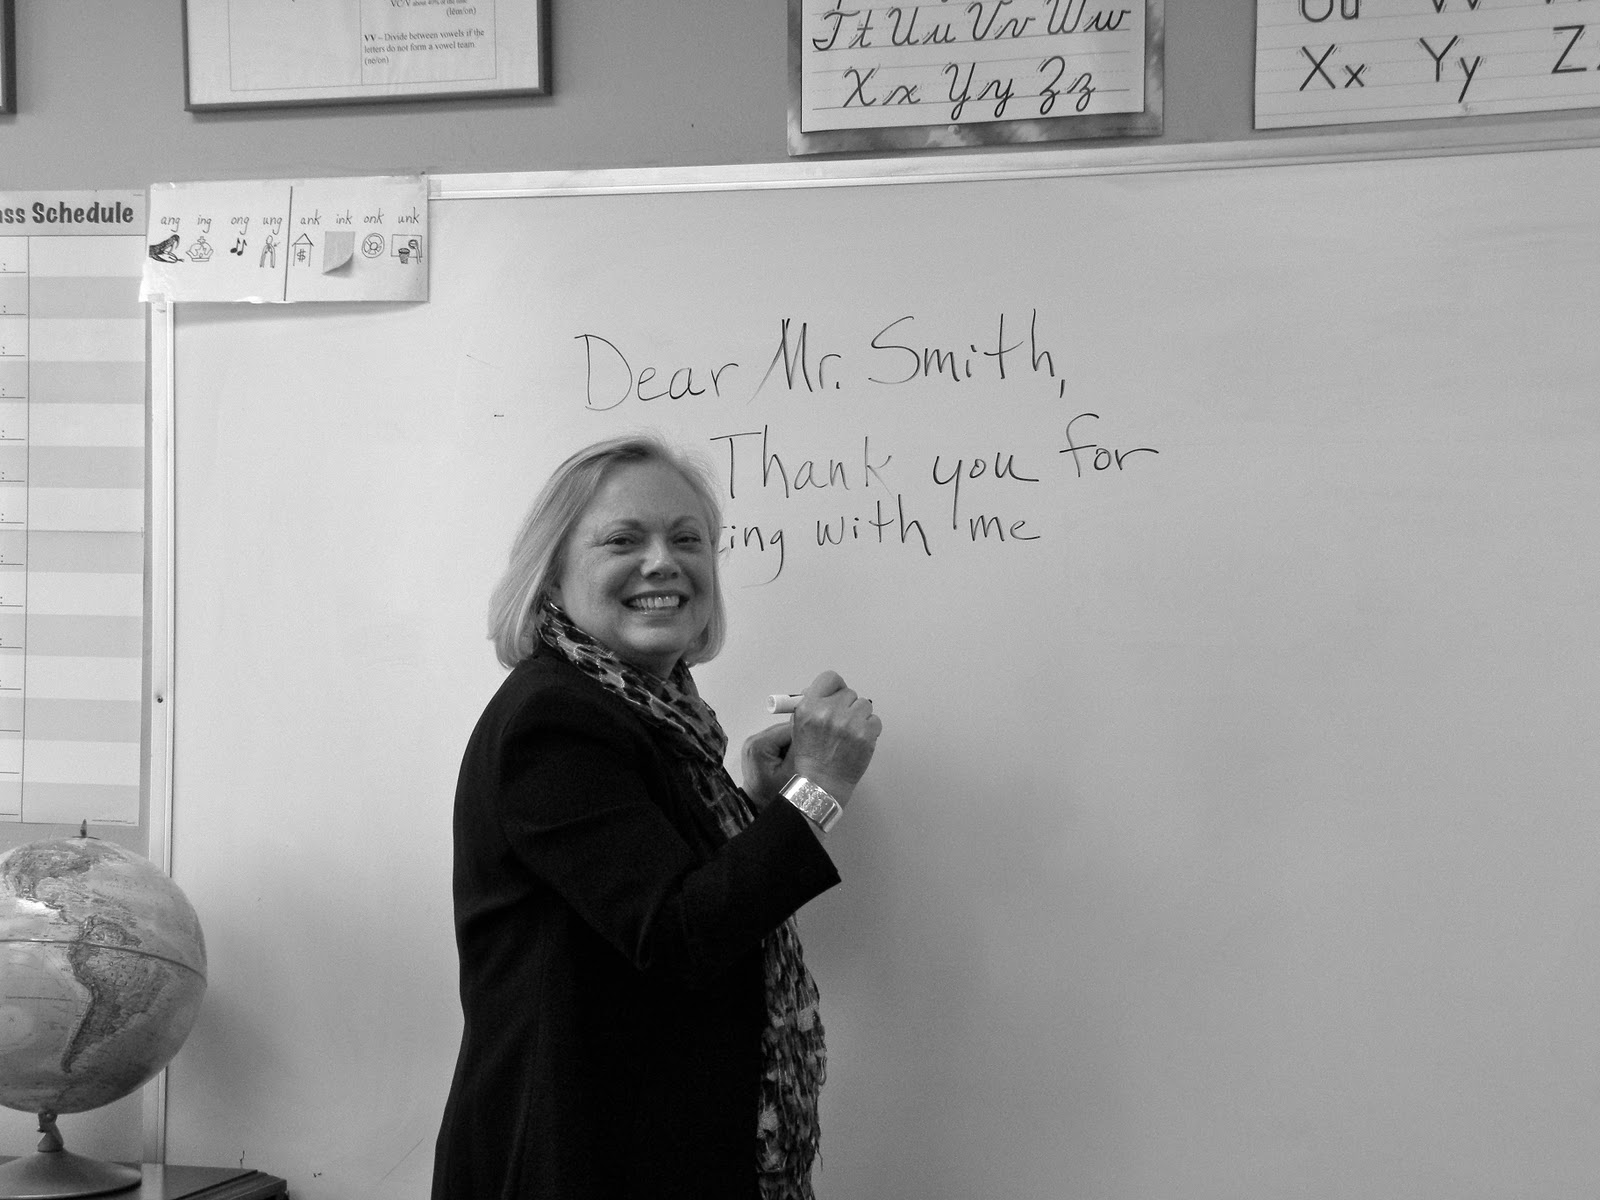 VC/V about 40% of the time
(lĕm/on)
VV – Divide between vowels if the
letters do not form a vowel team.
(ne/on)
Tt Uu Vv Ww
Xx Yy Zz
Uu Vv
Xx Yy Z
ass Schedule
ang ing ong ung ank ink onk unk
$
Dear Mr. Smith,
Thank you for
ing with me